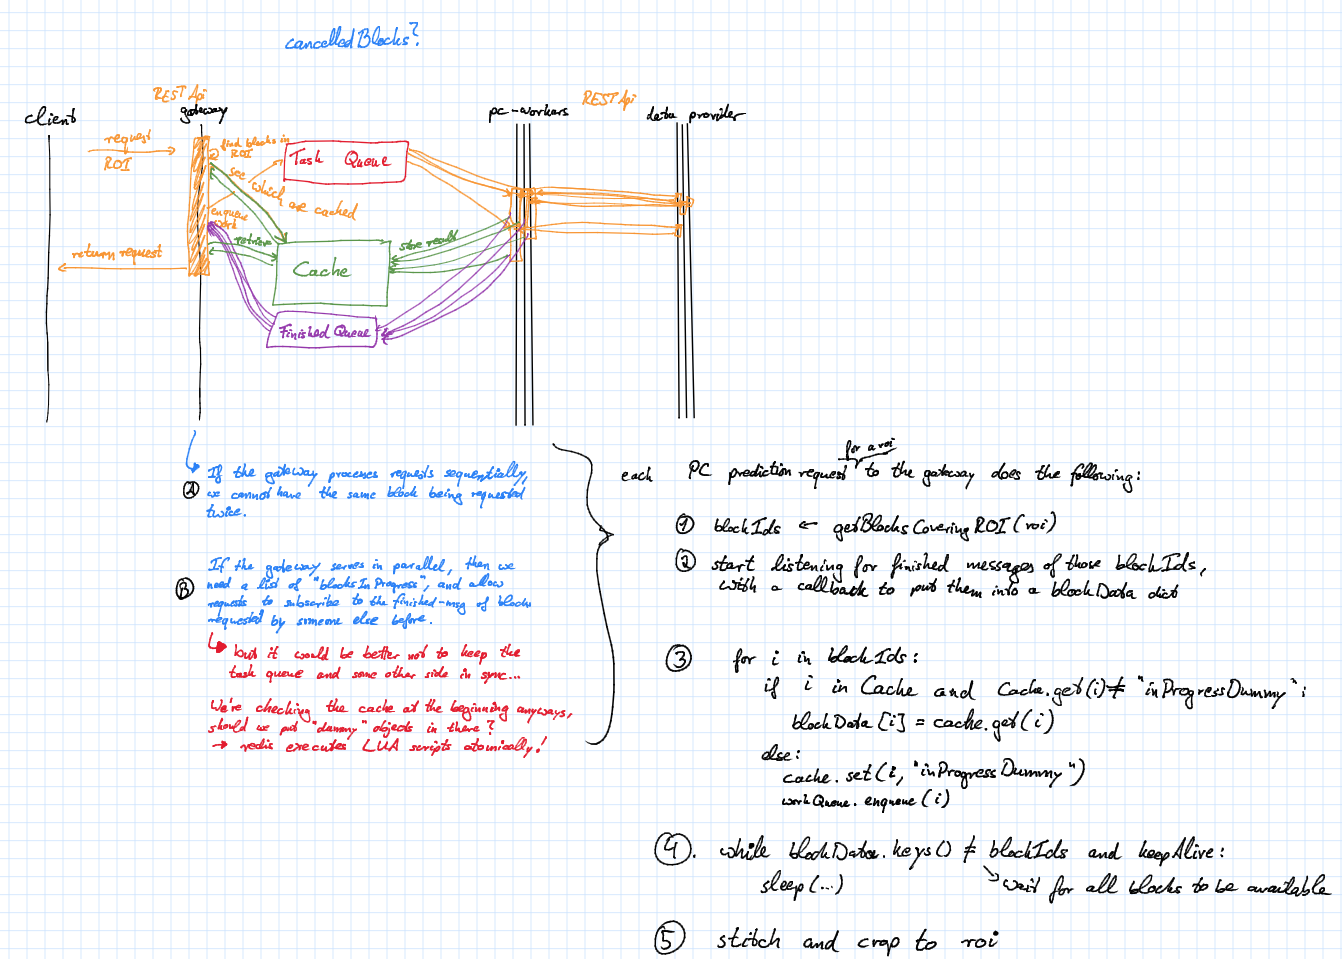 cancelledBlocks?
REST Api
client
gateway
pc-workers
REST Api
data provider
request
ROI
find blocks in
ROI
see which are cached
Task Queue
enqueue
work
retrieve
store result
return request
Cache
Finished Queue
If the gateway processes requests sequentially,
A we cannot have the same block being requested
twice.
If the gateway serves in parallel, then we
B need a list of "blocksInProgress", and allow
requests to subscribe to the finished-msg of blocks
requested by someone else before.
but it would be better not to keep the
task queue and some other side in sync...
We're checking the cache at the beginning anyways,
should we put "dummy" objects in there?
→ redis executes LUA scripts atomically!
for a roi
each PC prediction request to the gateway does the following:
1 blockIds ← getBlocksCoveringROI(roi)
2 start listening for finished messages of those blockIds,
with a callback to put them into a blockData dict
3 for i in blockIds:
if i in Cache and Cache.get(i) ≠ "inProgressDummy":
blockData[i] = cache.get(i)
else:
cache.set(i, "inProgressDummy")
workQueue.enqueue(i)
4. while blockData.keys() ≠ blockIds and keepAlive:
sleep(...)
wait for all blocks to be available
5 stitch and crop to roi